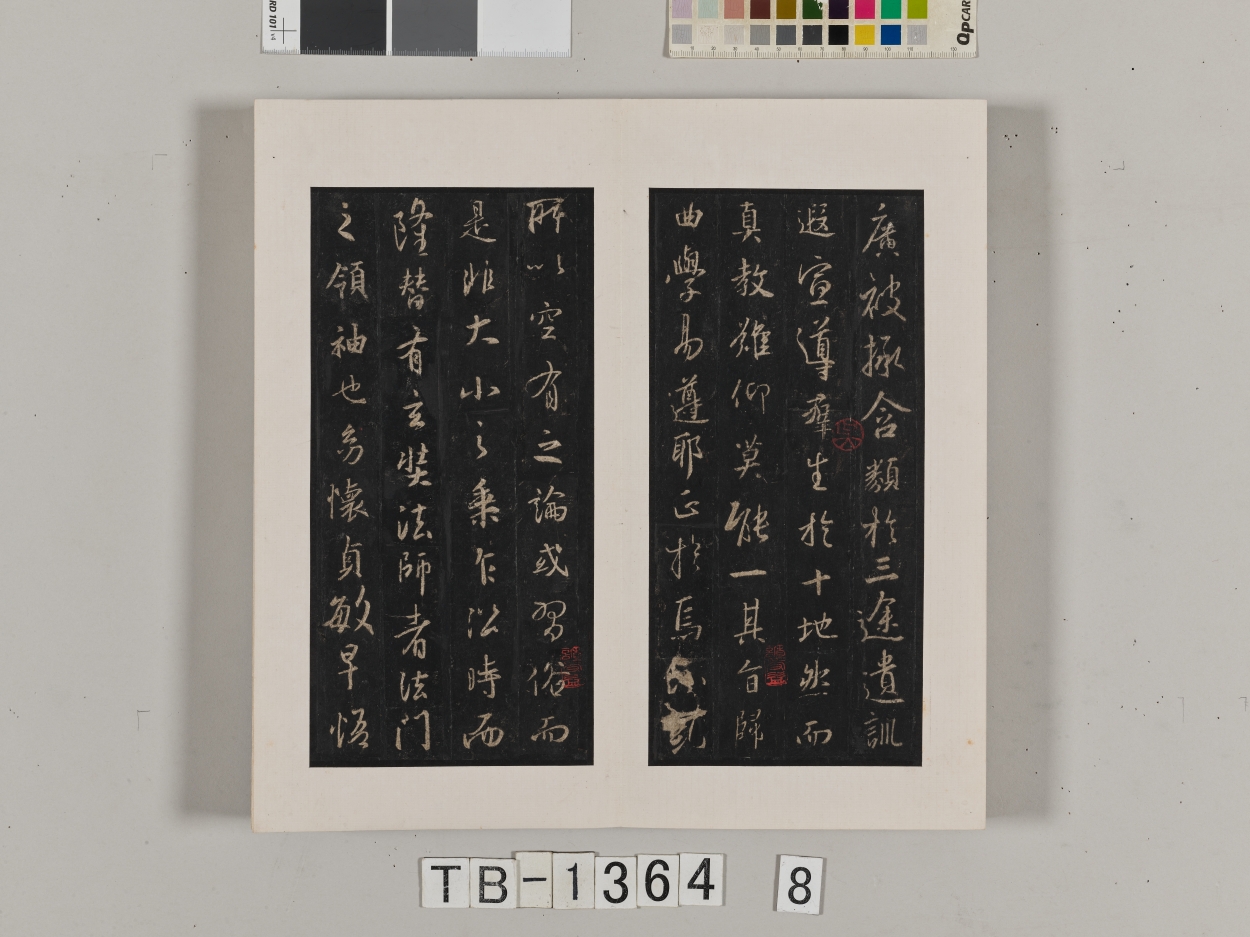 廣被拯含類於三途遺訓
遐宣導羣生於十地然而
真教難仰莫能一其旨歸
曲學易遵耶正於焉紛糺
所以空有之論或習俗而
是非大小之乘乍沿時而
隆替有玄奘法師者法門
之領袖也幼懷貞敏早悟
TB-1364 8